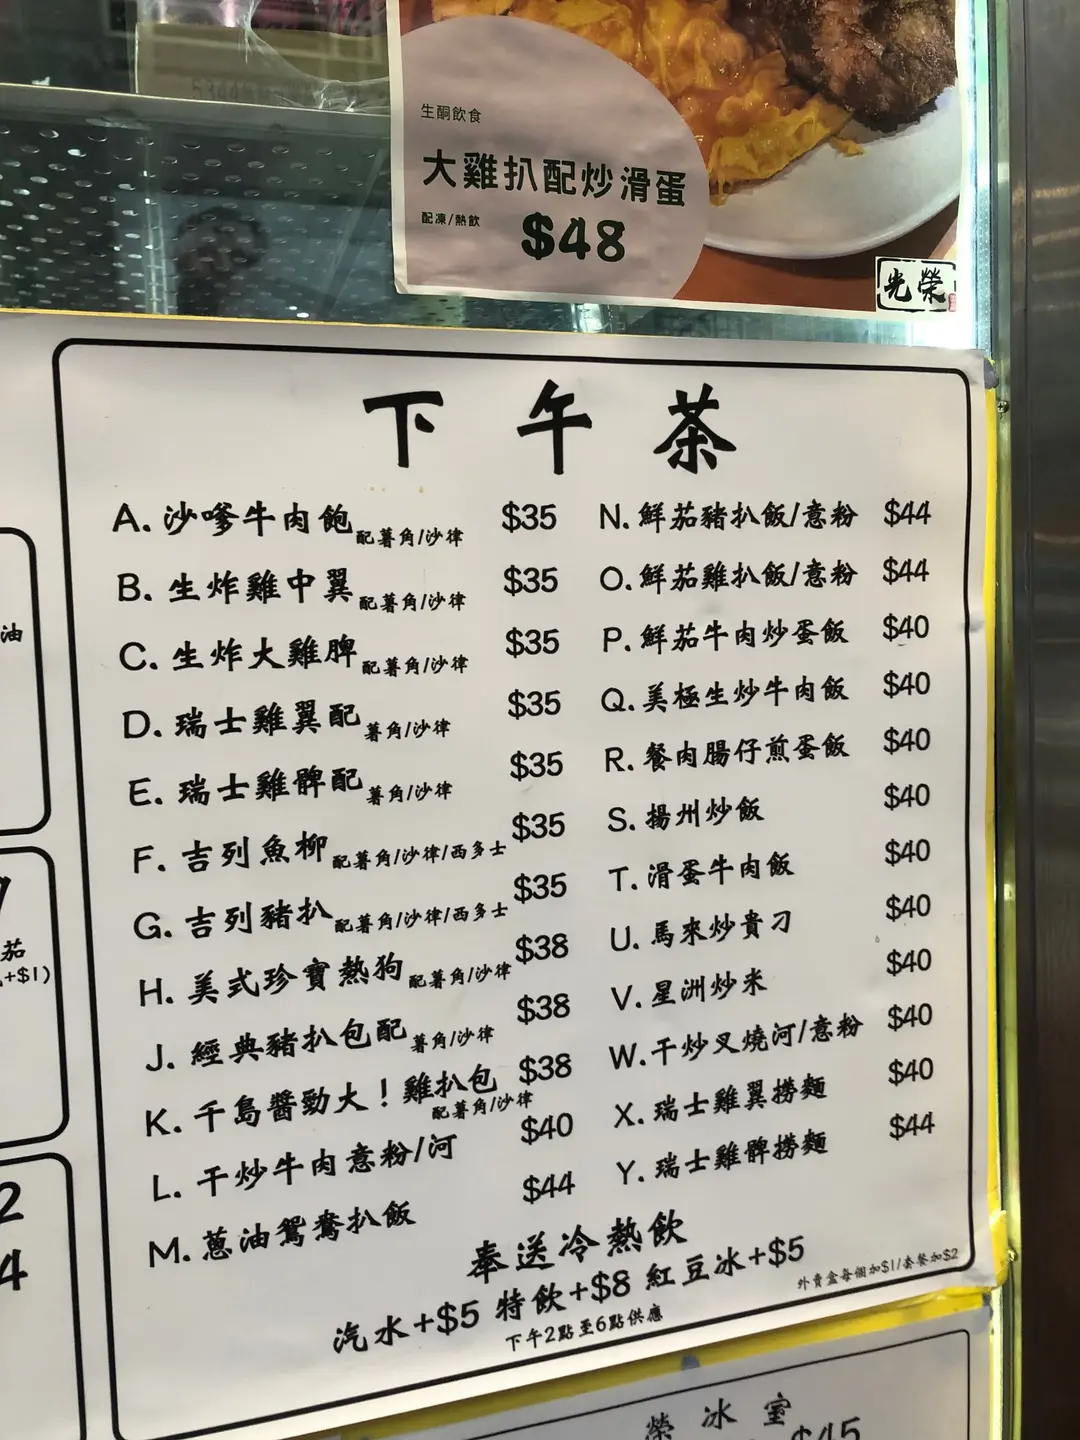 生酮飲食
大雞扒配炒滑蛋
配凍/熱飲
$48
光榮
下午茶
A. 沙嗲牛肉飽 配薯角/沙律 $35
B. 生炸雞中翼 配薯角/沙律 $35
C. 生炸大雞脾 配薯角/沙律 $35
D. 瑞士雞翼配 薯角/沙律 $35
E. 瑞士雞髀配 薯角/沙律 $35
F. 吉列魚柳 配薯角/沙律/西多士 $35
G. 吉列豬扒 配薯角/沙律/西多士 $35
H. 美式珍寶熱狗 配薯角/沙律 $38
J. 經典豬扒包配 薯角/沙律 $38
K. 千島醬勁大！雞扒包 配薯角/沙律 $38
L. 干炒牛肉意粉/河 $40
M. 蔥油鴛鴦扒飯 $44
N. 鮮茄豬扒飯/意粉 $44
O. 鮮茄雞扒飯/意粉 $44
P. 鮮茄牛肉炒蛋飯 $40
Q. 美極生炒牛肉飯 $40
R. 餐肉腸仔煎蛋飯 $40
S. 揚州炒飯 $40
T. 滑蛋牛肉飯 $40
U. 馬來炒貴刁 $40
V. 星洲炒米 $40
W. 干炒叉燒河/意粉 $40
X. 瑞士雞翼撈麵 $40
Y. 瑞士雞髀撈麵 $44
奉送冷熱飲
汽水+$5 特飲+$8 紅豆冰+$5
下午2點至6點供應
外賣盒每個加$1/套餐加$2
油
茄
+$1)
2
4
榮冰室
$45